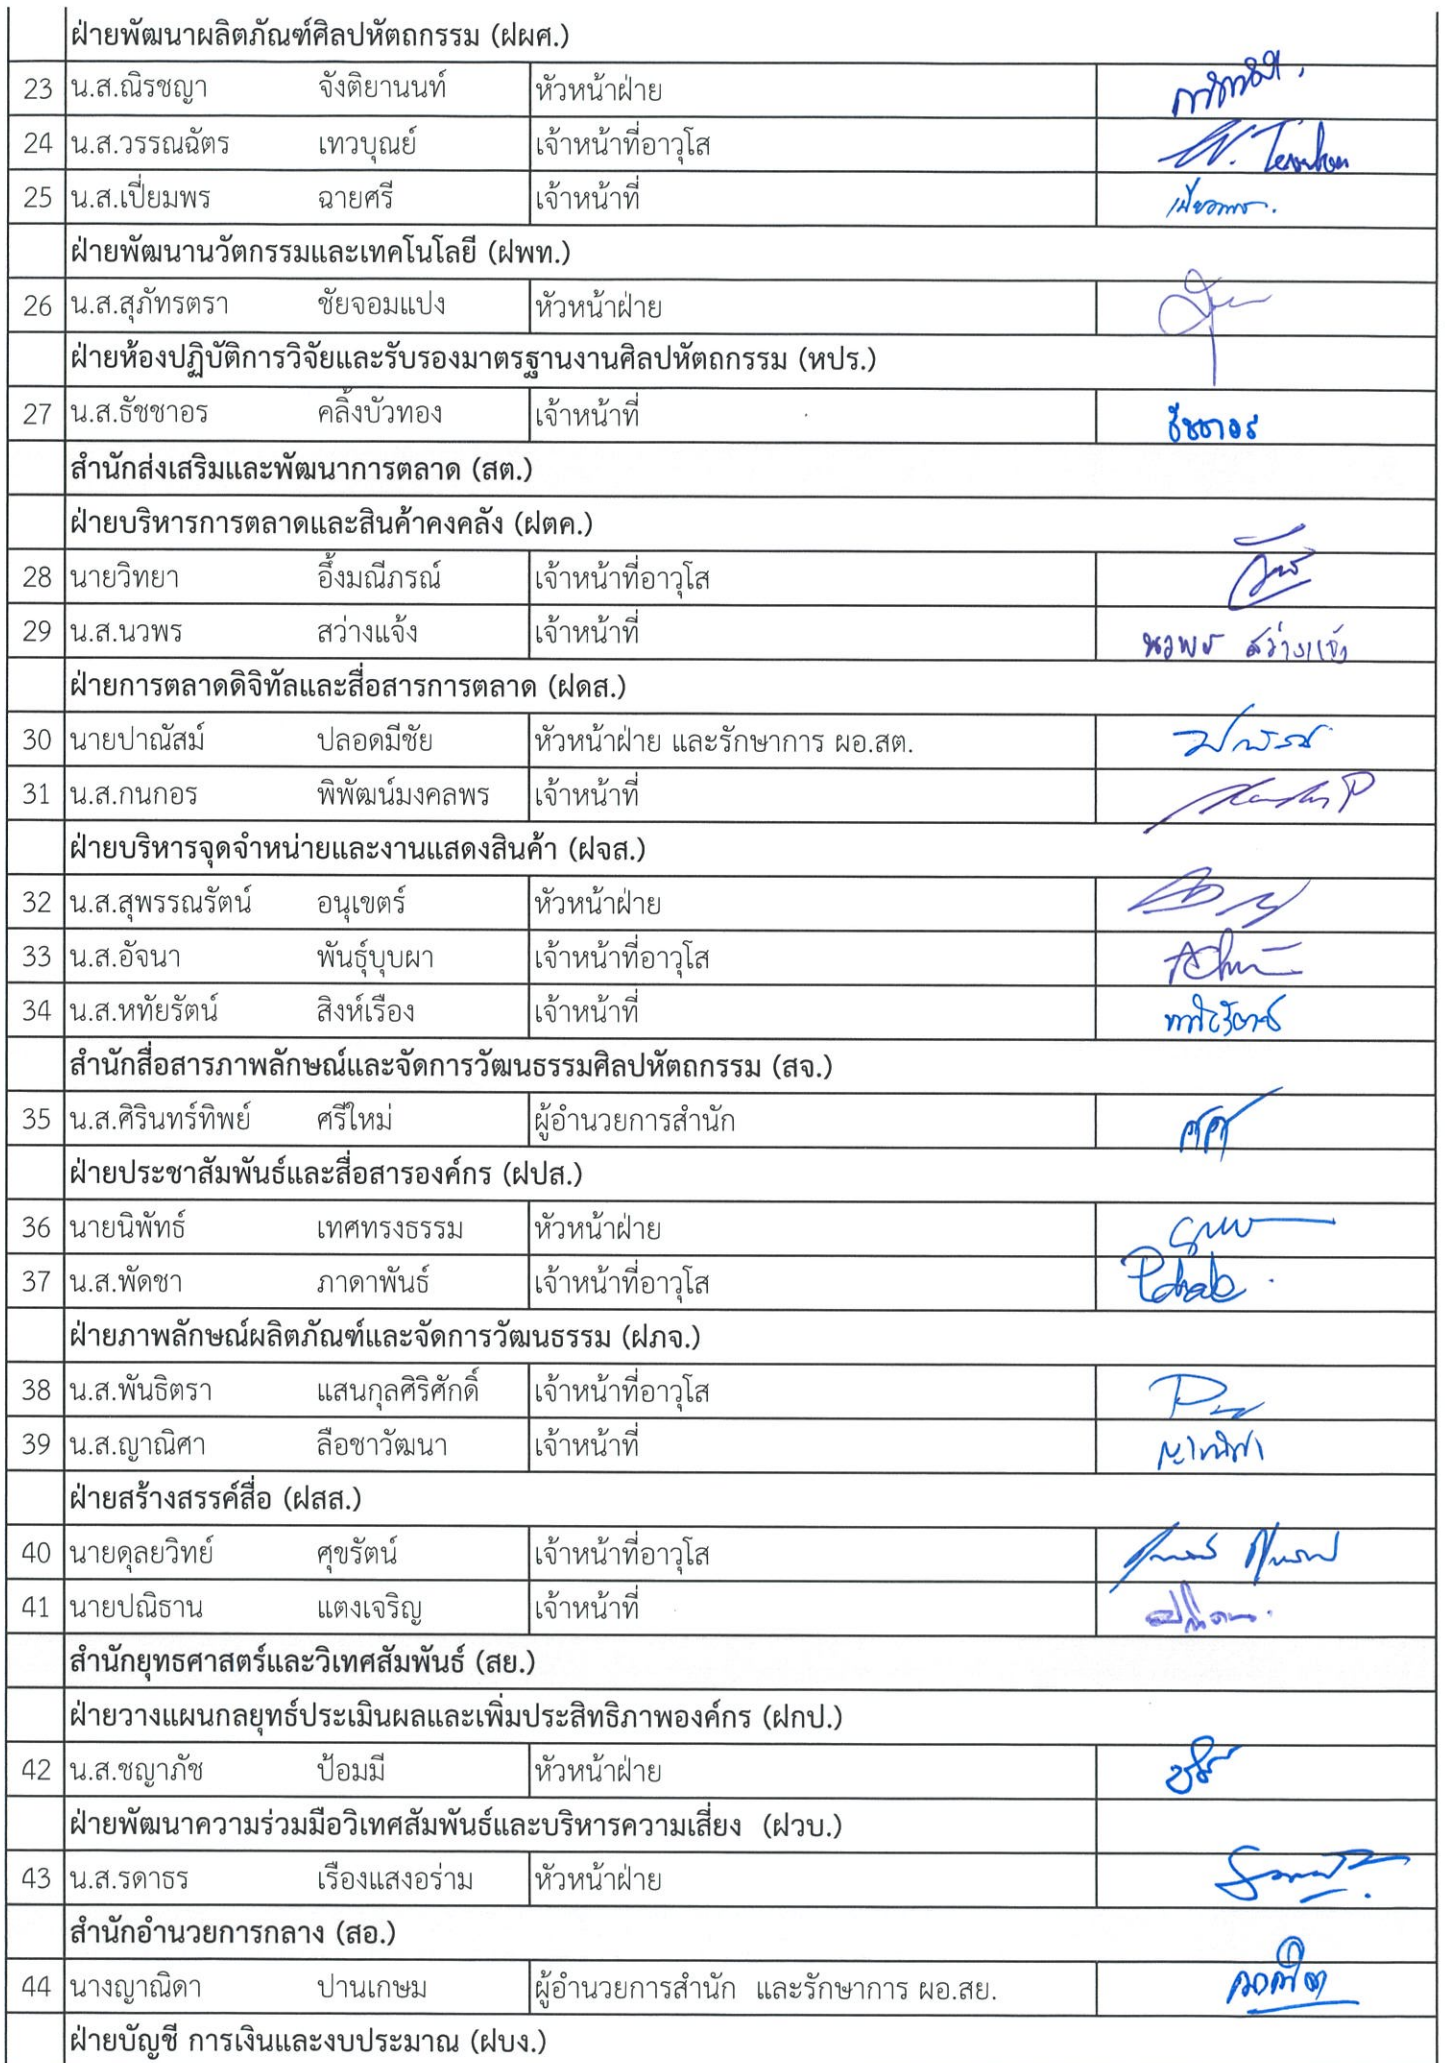 ฝ่ายพัฒนาผลิตภัณฑ์ศิลปหัตถกรรม (ฝผศ.)
23 น.ส.ณิรชญา จังติยานนท์ หัวหน้าฝ่าย
24 น.ส.วรรณฉัตร เทวบุณย์ เจ้าหน้าที่อาวุโส
25 น.ส.เปี่ยมพร ฉายศรี เจ้าหน้าที่ เปี่ยมพร
ฝ่ายพัฒนานวัตกรรมและเทคโนโลยี (ฝพท.)
26 น.ส.สุภัทรตรา ชัยจอมแปง หัวหน้าฝ่าย
ฝ่ายห้องปฏิบัติการวิจัยและรับรองมาตรฐานงานศิลปหัตถกรรม (หปร.)
27 น.ส.ธัชชาอร คลิ้งบัวทอง เจ้าหน้าที่ ธัชชาอร
สำนักส่งเสริมและพัฒนาการตลาด (สต.)
ฝ่ายบริหารการตลาดและสินค้าคงคลัง (ฝตค.)
28 นายวิทยา อึ้งมณีภรณ์ เจ้าหน้าที่อาวุโส
29 น.ส.นวพร สว่างแจ้ง เจ้าหน้าที่ นวพร สว่างแจ้ง
ฝ่ายการตลาดดิจิทัลและสื่อสารการตลาด (ฝดส.)
30 นายปาณัสม์ ปลอดมีชัย หัวหน้าฝ่าย และรักษาการ ผอ.สต.
31 น.ส.กนกอร พิพัฒน์มงคลพร เจ้าหน้าที่
ฝ่ายบริหารจุดจำหน่ายและงานแสดงสินค้า (ฝจส.)
32 น.ส.สุพรรณรัตน์ อนุเขตร์ หัวหน้าฝ่าย
33 น.ส.อัจนา พันธุ์บุบผา เจ้าหน้าที่อาวุโส
34 น.ส.หทัยรัตน์ สิงห์เรือง เจ้าหน้าที่ หทัยรัตน์
สำนักสื่อสารภาพลักษณ์และจัดการวัฒนธรรมศิลปหัตถกรรม (สจ.)
35 น.ส.ศิรินทร์ทิพย์ ศรีใหม่ ผู้อำนวยการสำนัก
ฝ่ายประชาสัมพันธ์และสื่อสารองค์กร (ฝปส.)
36 นายนิพัทธ์ เทศทรงธรรม หัวหน้าฝ่าย
37 น.ส.พัดชา ภาดาพันธ์ เจ้าหน้าที่อาวุโส
ฝ่ายภาพลักษณ์ผลิตภัณฑ์และจัดการวัฒนธรรม (ฝภจ.)
38 น.ส.พันธิตรา แสนกุลศิริศักดิ์ เจ้าหน้าที่อาวุโส
39 น.ส.ญาณิศา ลือชาวัฒนา เจ้าหน้าที่ ญาณิศา
ฝ่ายสร้างสรรค์สื่อ (ฝสส.)
40 นายดุลยวิทย์ ศุขรัตน์ เจ้าหน้าที่อาวุโส
41 นายปณิธาน แตงเจริญ เจ้าหน้าที่
สำนักยุทธศาสตร์และวิเทศสัมพันธ์ (สย.)
ฝ่ายวางแผนกลยุทธ์ประเมินผลและเพิ่มประสิทธิภาพองค์กร (ฝกป.)
42 น.ส.ชญาภัช ป้อมมี หัวหน้าฝ่าย
ฝ่ายพัฒนาความร่วมมือวิเทศสัมพันธ์และบริหารความเสี่ยง (ฝวบ.)
43 น.ส.รดาธร เรืองแสงอร่าม หัวหน้าฝ่าย
สำนักอำนวยการกลาง (สอ.)
44 นางญาณิดา ปานเกษม ผู้อำนวยการสำนัก และรักษาการ ผอ.สย.
ฝ่ายบัญชี การเงินและงบประมาณ (ฝบง.)